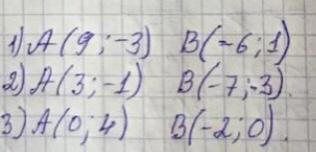 1) A(9;-3) B(-6;1)
2) A(3;-1) B(-7;-3).
3) A(0;4) B(-2;0).